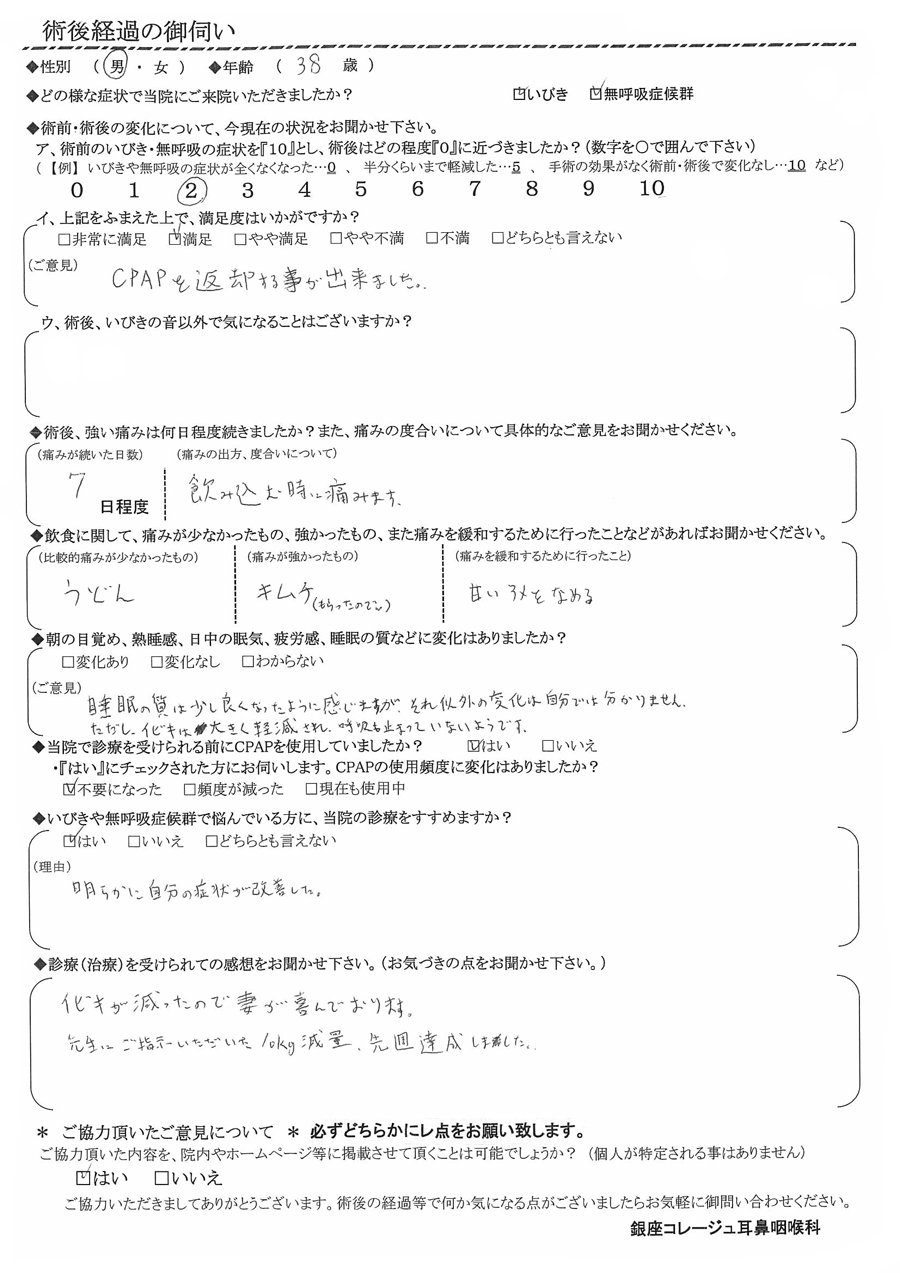 術後経過の御伺い
◆性別 （ 男 ・ 女 ） ◆年齢 （ 38 歳 ）
◆どの様な症状で当院にご来院いただきましたか？ ☑いびき ☑無呼吸症候群
◆術前・術後の変化について、今現在の状況をお聞かせ下さい。
ア、術前のいびき・無呼吸の症状を『10』とし、術後はどの程度『0』に近づきましたか？（数字を○で囲んで下さい）
（【例】いびきや無呼吸の症状が全くなくなった…0 、 半分くらいまで軽減した…5 、 手術の効果がなく術前・術後で変化なし…10 など）
0 1 2 3 4 5 6 7 8 9 10
イ、上記をふまえた上で、満足度はいかがですか？
□非常に満足 ☑満足 □やや満足 □やや不満 □不満 □どちらとも言えない
（ご意見）
CPAPを返却する事が出来ました。
ウ、術後、いびきの音以外で気になることはございますか？
◆術後、強い痛みは何日程度続きましたか？また、痛みの度合いについて具体的なご意見をお聞かせください。
（痛みが続いた日数） （痛みの出方、度合いについて）
7 日程度 飲み込む時に痛みます。
◆飲食に関して、痛みが少なかったもの、強かったもの、また痛みを緩和するために行ったことなどがあればお聞かせください。
（比較的痛みが少なかったもの） （痛みが強かったもの） （痛みを緩和するために行ったこと）
うどん キムチ（もらったので） 甘いアメをなめる
◆朝の目覚め、熟睡感、日中の眠気、疲労感、睡眠の質などに変化はありましたか？
□変化あり □変化なし □わからない
（ご意見）
睡眠の質は少し良くなったように感じますが、それ以外の変化は自分では分かりません。
ただし、イビキは大きく軽減され、呼吸も止まっていないようです。
◆当院で診療を受けられる前にCPAPを使用していましたか？ ☑はい □いいえ
・『はい』にチェックされた方にお伺いします。CPAPの使用頻度に変化はありましたか？
☑不要になった □頻度が減った □現在も使用中
◆いびきや無呼吸症候群で悩んでいる方に、当院の診療をすすめますか？
☑はい □いいえ □どちらとも言えない
（理由）
明らかに自分の症状が改善した。
◆診療（治療）を受けられての感想をお聞かせ下さい。（お気づきの点をお聞かせ下さい。）
イビキが減ったので妻が喜んでおります。
先生にご指示いただいた10kg減量、先週達成しました。
＊ ご協力頂いたご意見について ＊ 必ずどちらかにレ点をお願い致します。
ご協力頂いた内容を、院内やホームページ等に掲載させて頂くことは可能でしょうか？（個人が特定される事はありません）
☑はい □いいえ
ご協力いただきましてありがとうございます。術後の経過等で何か気になる点がございましたらお気軽に御問い合わせください。
銀座コレージュ耳鼻咽喉科